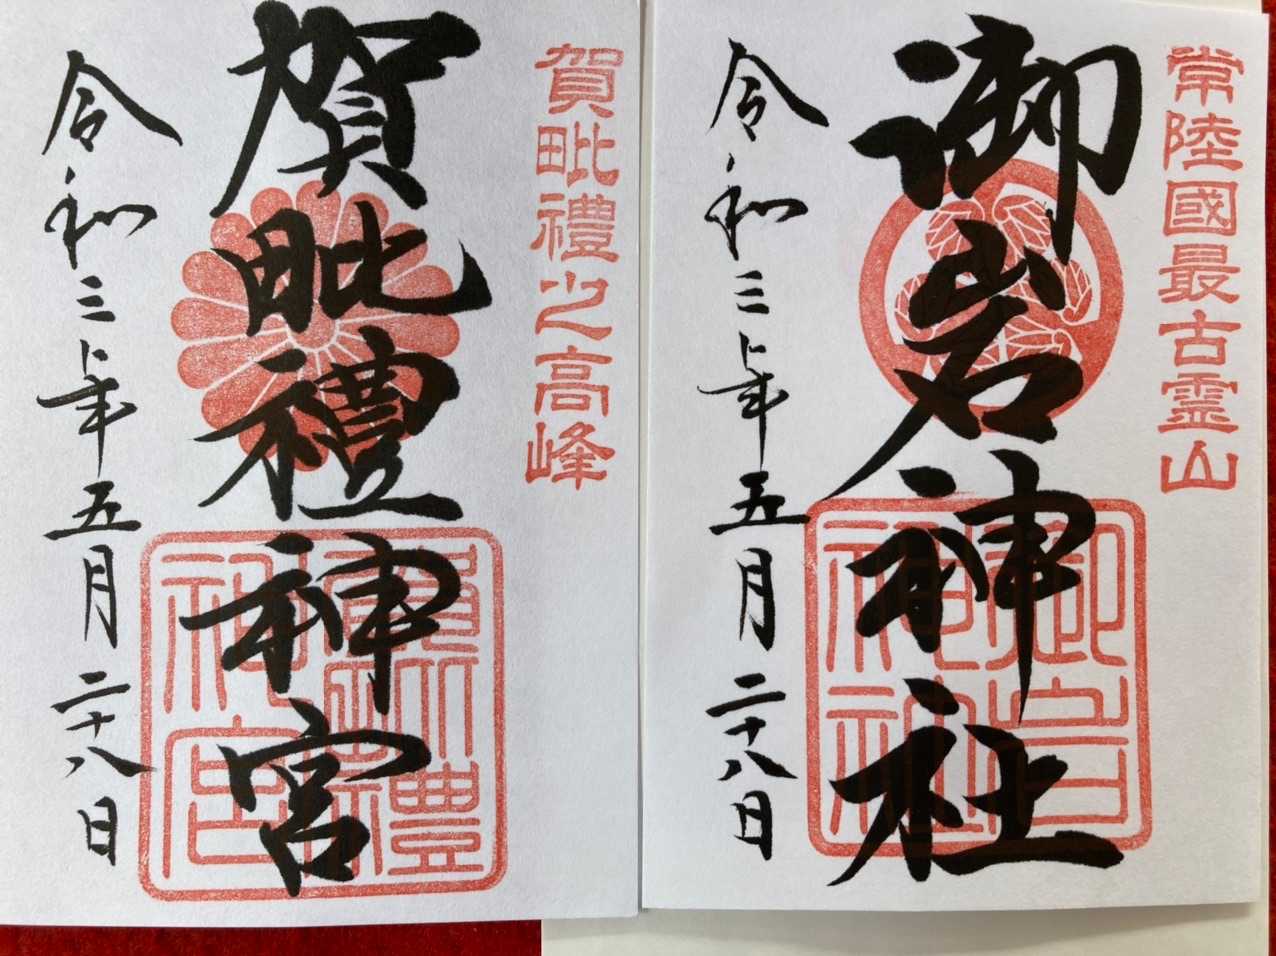 常陸國最古霊山
御岩神社
令和三年五月二十八日
賀毗禮之高峰
賀毗禮神宮
令和三年五月二十八日